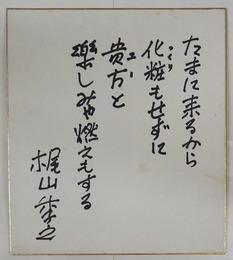 たまに来るから
化粧もせずに
貴方と
楽しみや燃えもする
梶山季之